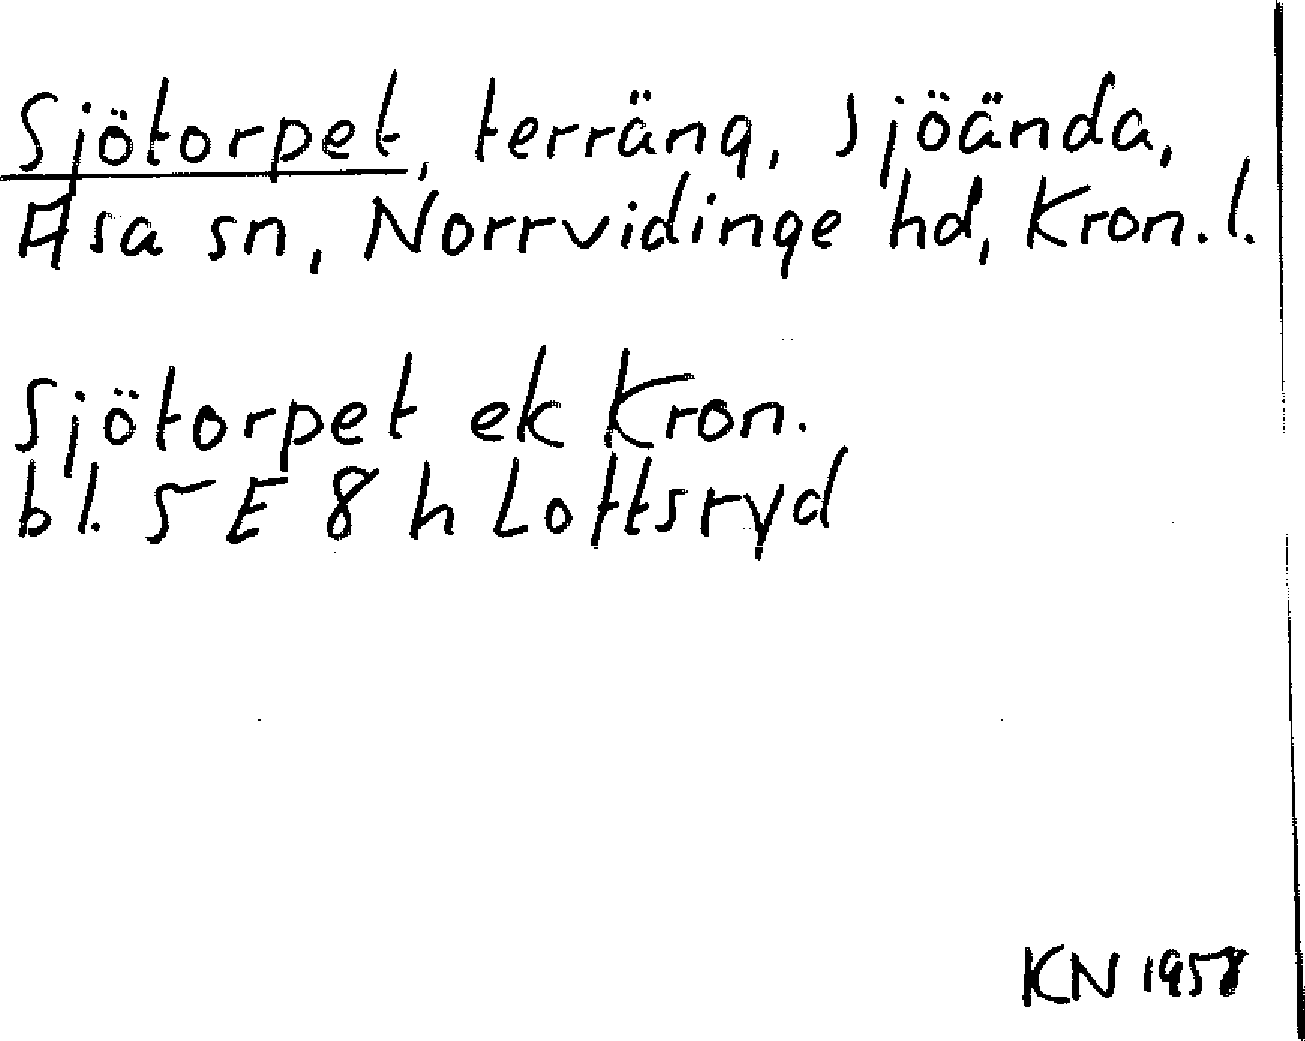 Sjötorpet, terräng, Sjöända,
Asa sn, Norrvidinge hd, Kron. l.
Sjötorpet ek Kron.
bl. 5 E 8 h Loftsryd
KN 1958